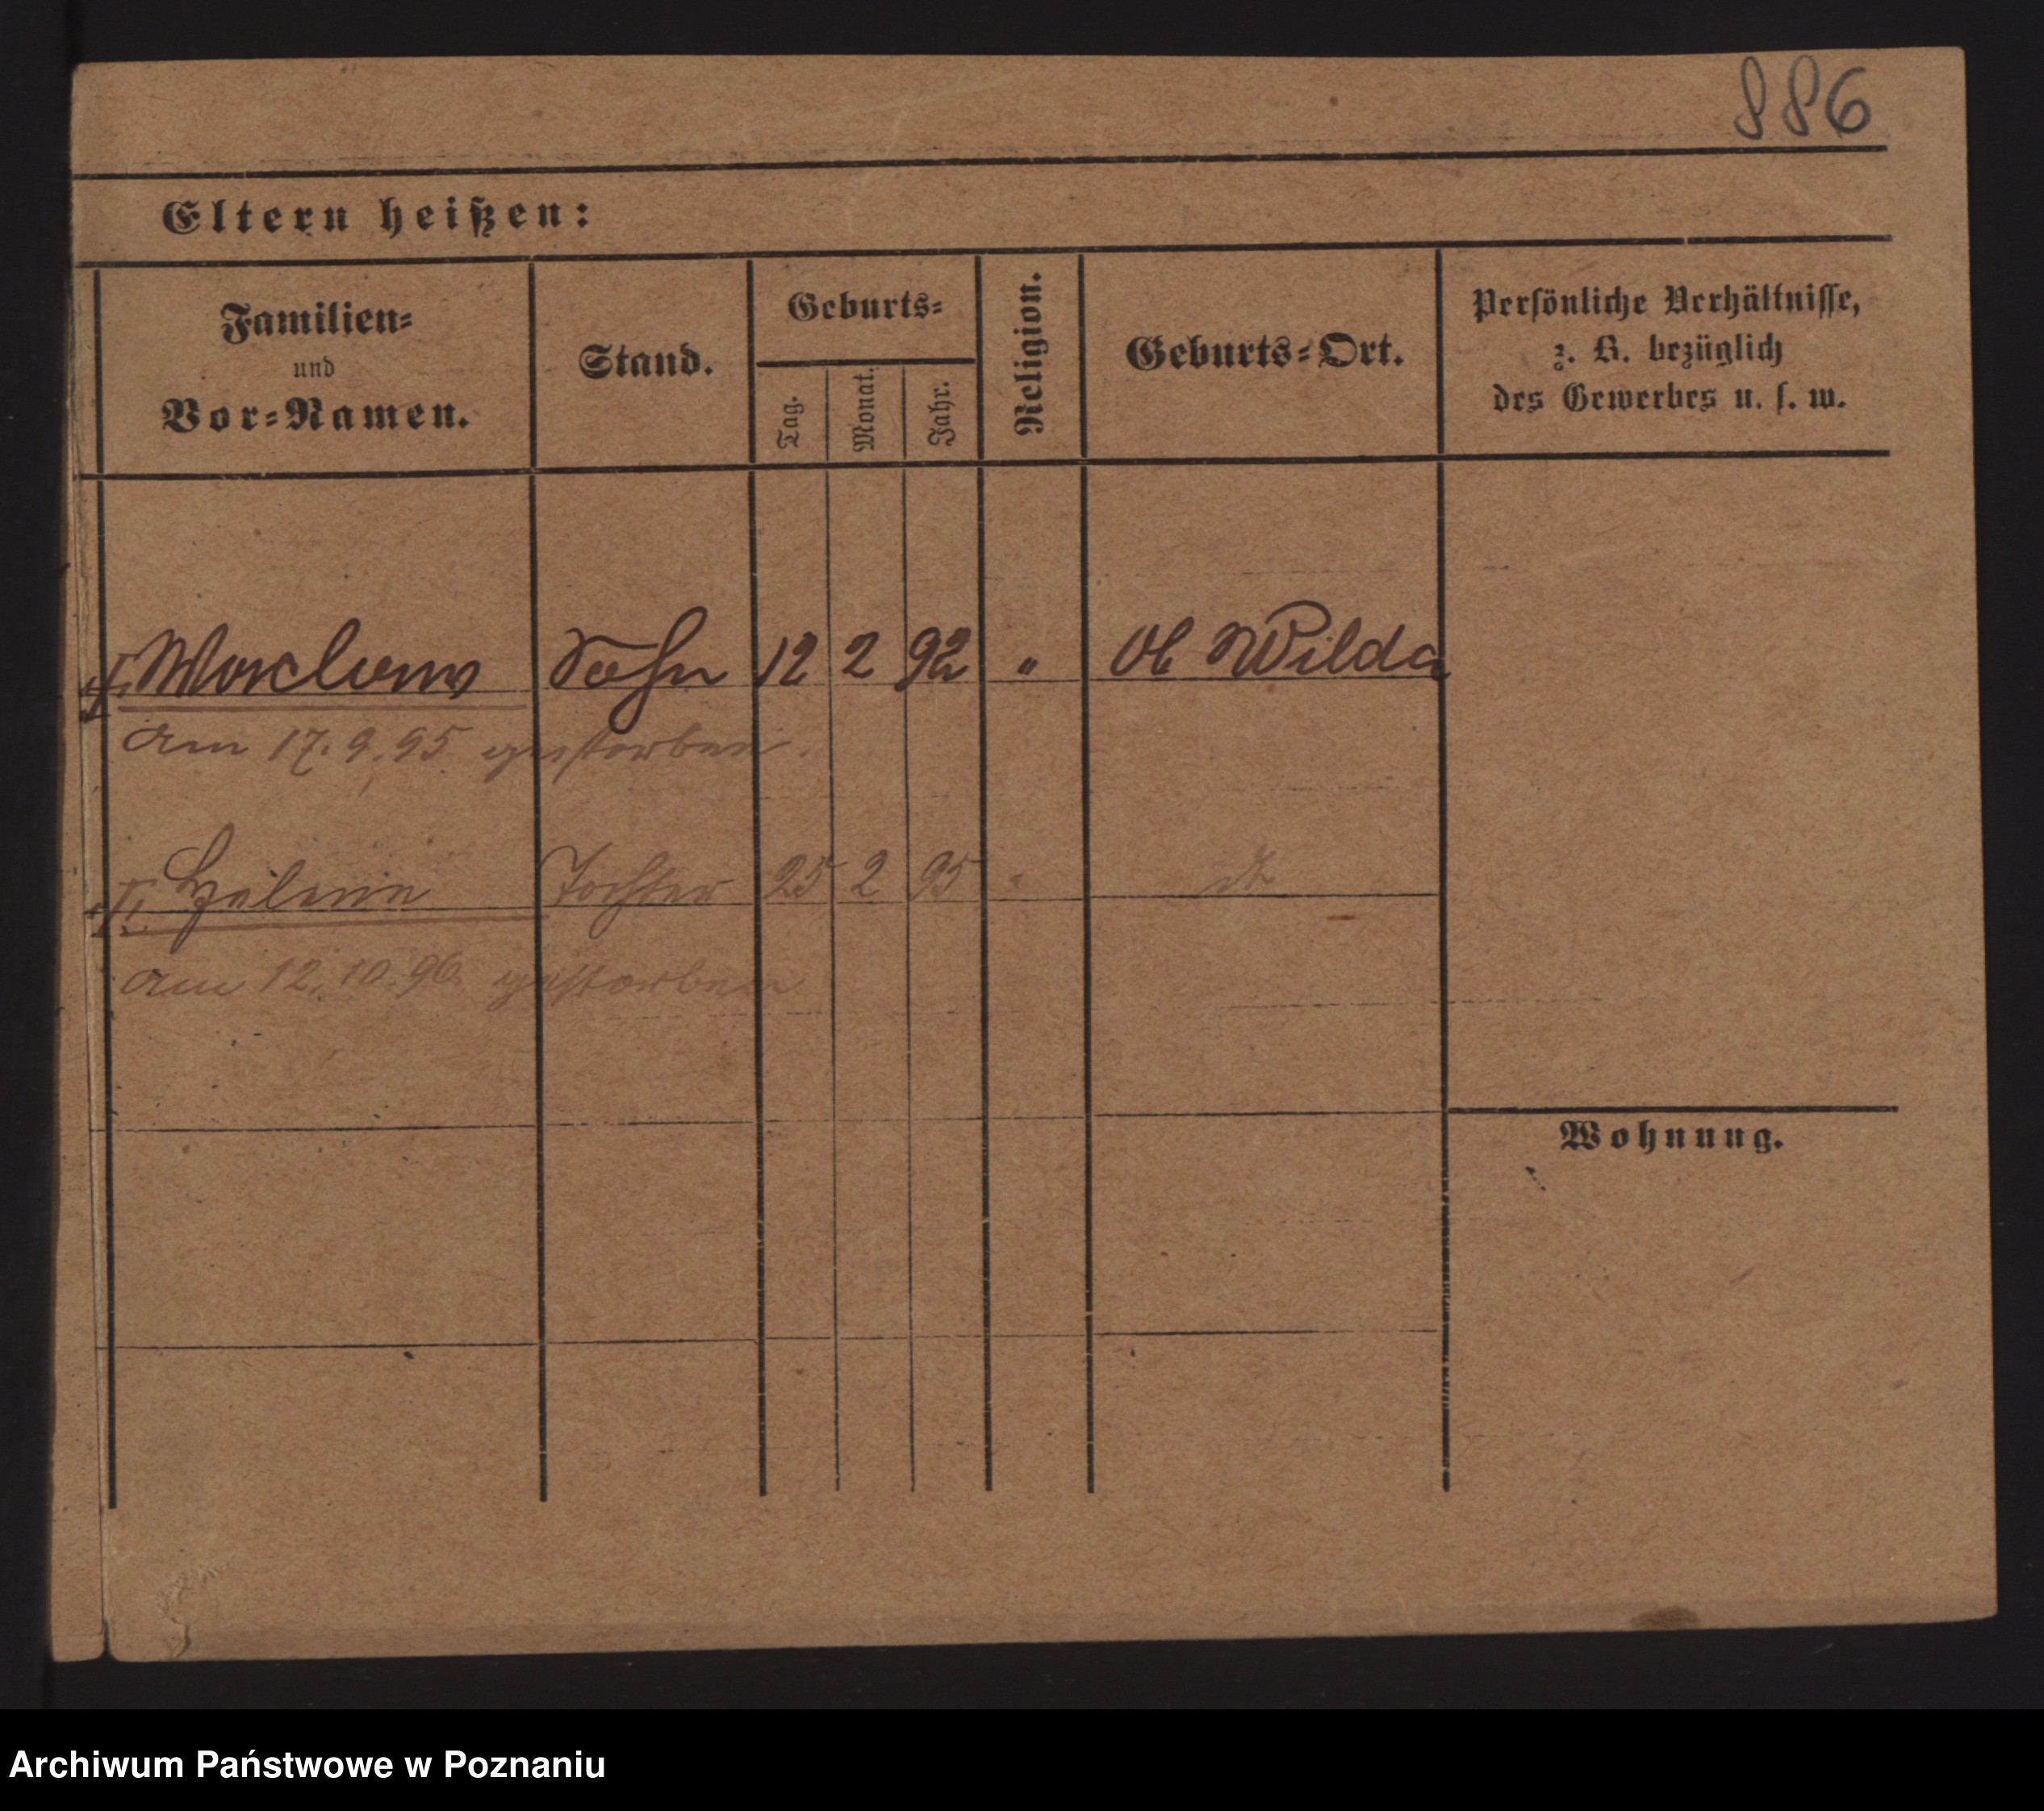 886
Eltern heißen:
Familien-
und
Vor-Namen.
Stand.
Geburts-
Tag.
Monat.
Jahr.
Religion.
Geburts-Ort.
Persönliche Verhältnisse,
z. B. bezüglich
des Gewerbes u. s. w.
Waclaw Sohn 12 2 92 " Ob Wilda
am 17.9.95 gestorben.
Helene Tochter 25 2 95 "
am 12.10.96 gestorben
Wohnung.
Archiwum Państwowe w Poznaniu